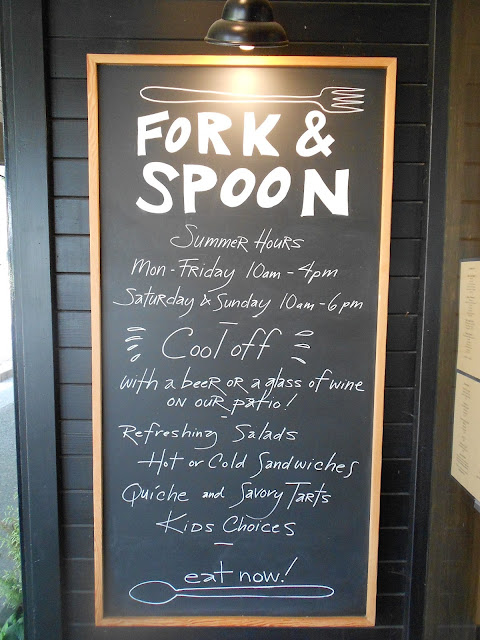 FORK &
SPOON
Summer Hours
Mon - Friday 10am - 4pm
Saturday & Sunday 10am - 6pm
Cool off
with a beer or a glass of wine
on our patio!
Refreshing Salads
Hot or Cold Sandwiches
Quiche and Savory Tarts
Kids Choices
eat now!